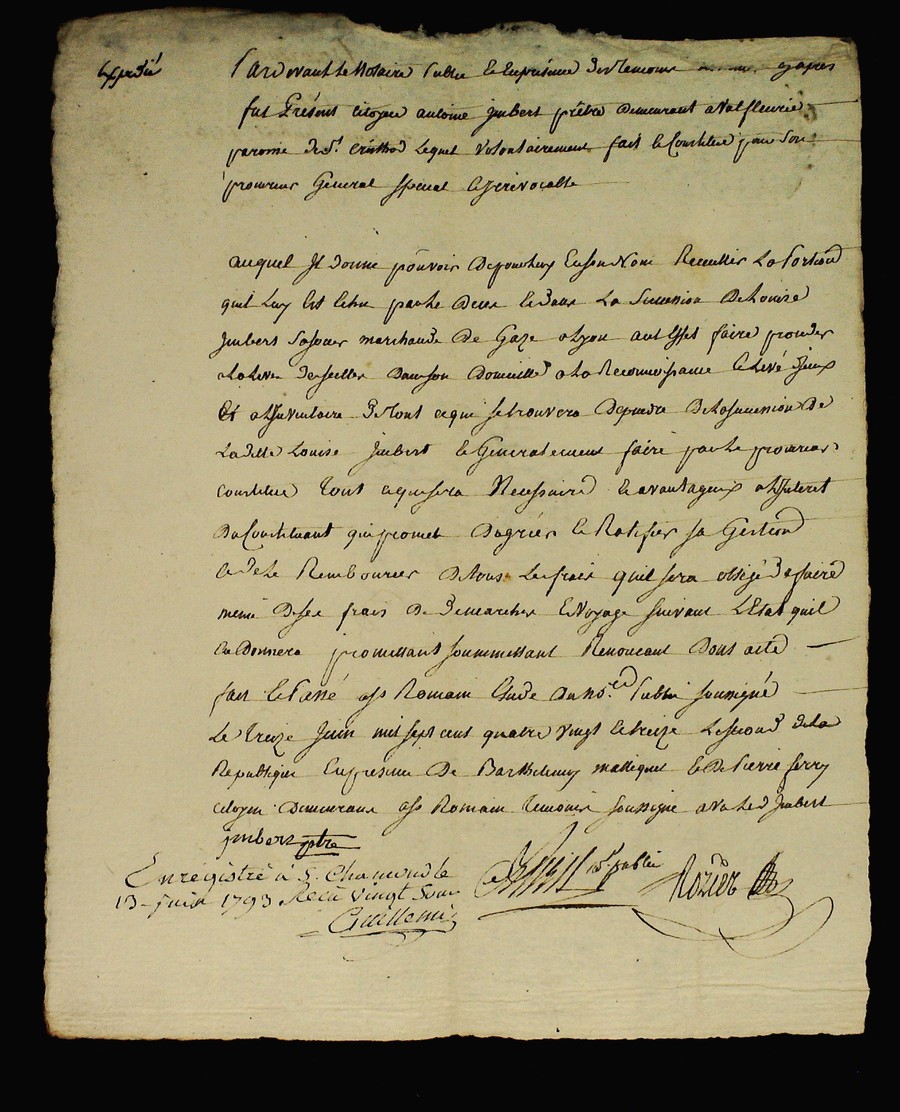 Expedié
Pardevant Le Notaire Public Et En presence des temoins cy apres
fut Present Citoyen antoine Jmbert prêtre demeurant a Valfleurie
paroisse de St. Cristhod Lequel Volontairement fait et Constitue pour Son
procureur General special et irévocable
auquel Jl donne pouvoir de pour luy En son Nom Recuillir La Portion
quil Luy Est Echue par Le deces et dans La Succession de Louise
Jmbert Sa soeur marchande de Gaze a Lyon aux Effet faire proceder
a La levée des scelles dans son domicille a La Reconnoissance et Levé d'iceux
Et a l'Inventaire de tout ce qui se trouvera dependre de la succession de
La ditte Louise Jmbert et Generalement faire par Le procureur
Constitue tout ce qui sera Necessaire et avantageux a l'Interet
du Constituant qui promet d'agréer et Ratifier sa Gestion
et de Le Rembourser de tous Les frais quil sera obligé de faire
meme de ses frais de demarches et Voyage suivant L'Etat quil
En donnera promettant soummettant Renoncant dont acte
fait et Passé a St Romain Etude du no.re Public soussigné
Le treize Juin mil sept cent quatre vingt et treize Le second de la
Republique En presence de Barthelemy et de Pierre ferry
Citoyen demeurant a St Romain temoins soussigné avec Led Jmbert
jmbert ptre
n.re public
Rozier
Enregistré à S. Chamond le
13 juin 1793 Reçu Vingt Sous
Guillemin